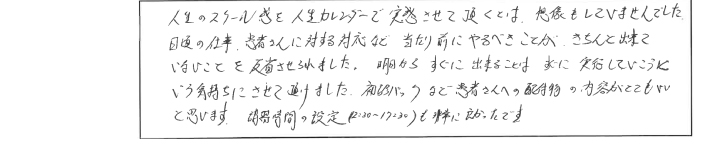 人生のスケール感を人生カレンダーで実感させて頂くとは、想像もしていませんでした。
日頃の仕事、患者さんに対する対応など 当たり前にやるべきことが、きちんと出来て
いないことを反省させられました。明日から すぐに出来ることは すぐに 実行していこうと
いう気持ちにさせて頂けました。初診パックなど患者さんへの配布物の内容がとてもいい
と思います。 時間の設定(12:30〜17:30)も 非常に良かったです